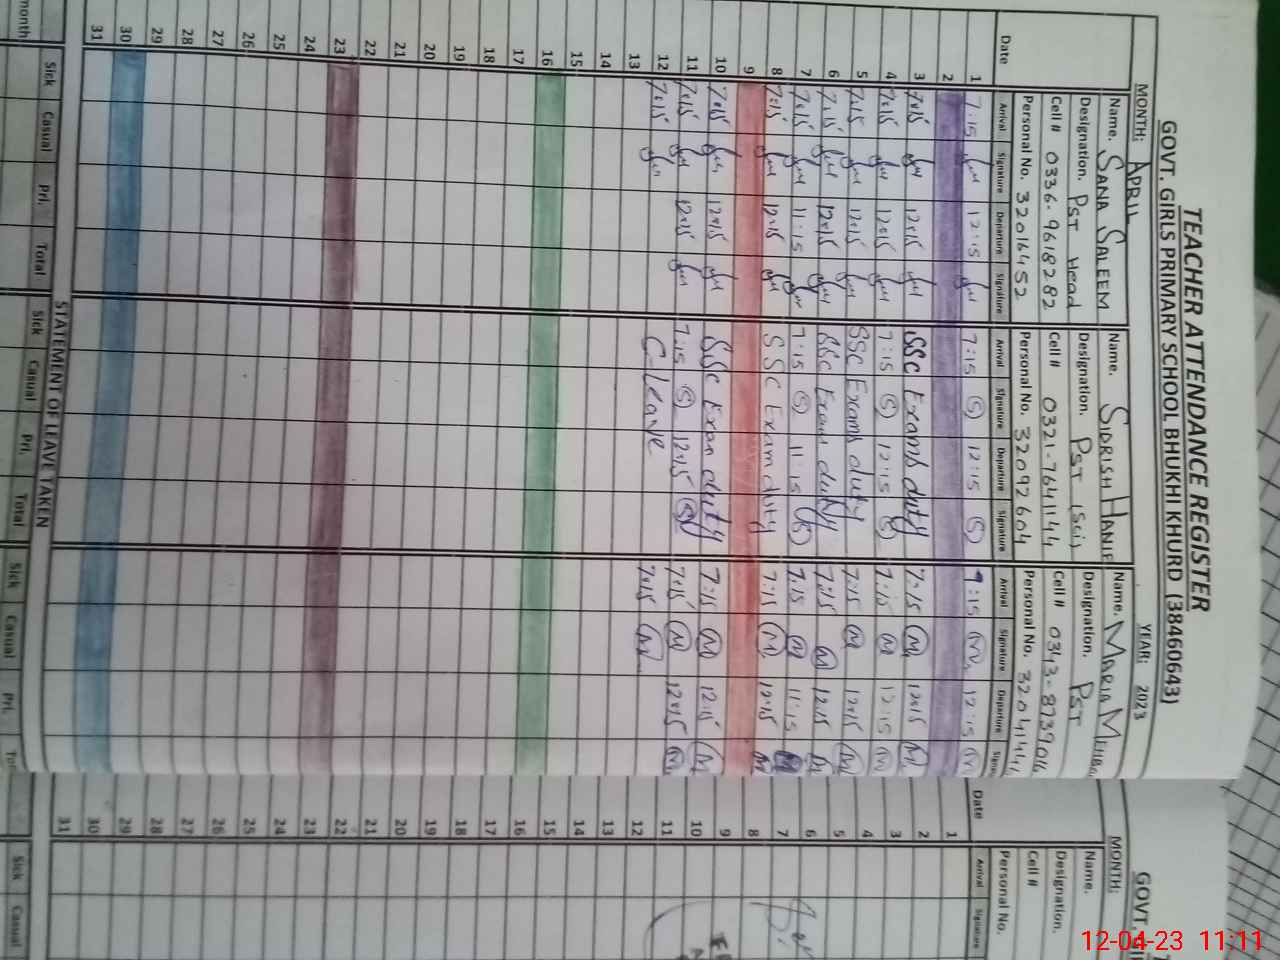 TEACHER ATTENDANCE REGISTER
GOVT. GIRLS PRIMARY SCHOOL BHUKHI KHURD (38460643)
MONTH: APRIL YEAR: 2023
Name. SANA SALEEM Name. SIDRISH HANIF Name. MARIA
Designation. PST Head Designation. PST (Sci) Designation. PST
Cell # 0336-9618282 Cell # 0321-7641144 Cell # 0343-8739016
Personal No. 32016452 Personal No. 32092604 Personal No. 32041441
Date Arrival Signature Departure Signature Arrival Signature Departure Signature Arrival Signature Departure
1 7:15 12:15 7:15 S 12:15 S 9:15 M 12:15 M
2
3 7:15 12:15 SSC Exams duty 7:15 M 12:15 M
4 7:15 12:15 7:15 S 12:15 S 7:15 M 12:15 M
5 7:15 12:15 SSC Exams duty 7:15 M 12:15 M
6 7:15 12:15 SSC Exam duty 7:15 M 12:15 M
7 7:15 11:15 7:15 S 11:15 S 7:15 M 11:15 M
8 7:15 12:15 SSC Exam duty 7:15 M 12:15 M
9
10 7:15 12:15 SSC Exam duty 7:15 M 12:15 M
11 7:15 12:15 7:15 S 12:15 S 7:15 M 12:15 M
12 7:15 C-leave 7:15 M
13
14
15
16
17
18
19
20
21
22
23
24
25
26
27
28
29
30
31
STATEMENT OF LEAVE TAKEN
month Sick Casual Pri. Total Sick Casual Pri. Total Sick Casual Pri.
GOVT.
MONTH:
Name.
Designation.
Cell #
Personal No.
Date Arrival Signature
1
2
3
4
5
6
7
8
9
10
11
12
13
14
15
16
17
18
19
20
21
22
23
24
25
26
27
28
29
30
31
Sick Casual
12-04-23 11:11